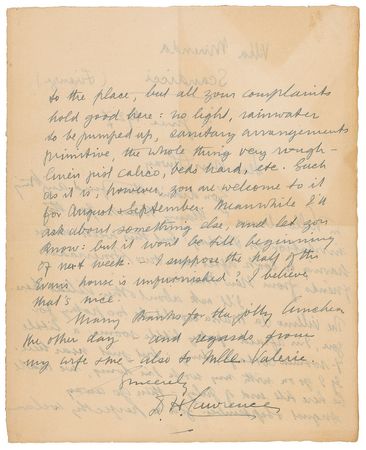 to the place, but all your complaints
hold good here: no light, rainwater
to be pumped up, sanitary arrangements
primitive, the whole thing very rough –
linen just calico, beds hard, etc. Such
as it is, however, you are welcome to it
for August & September. Meanwhile I'll
ask about something else, and let you
know: but it won't be till beginning
of next week. I suppose the half of the
Evans house is unfurnished? I believe
that's nice.
Many thanks for the jolly luncheon
the other day – and regards from
my wife & me – also to Mlle. Valerie.
Sincerely
D. H. Lawrence